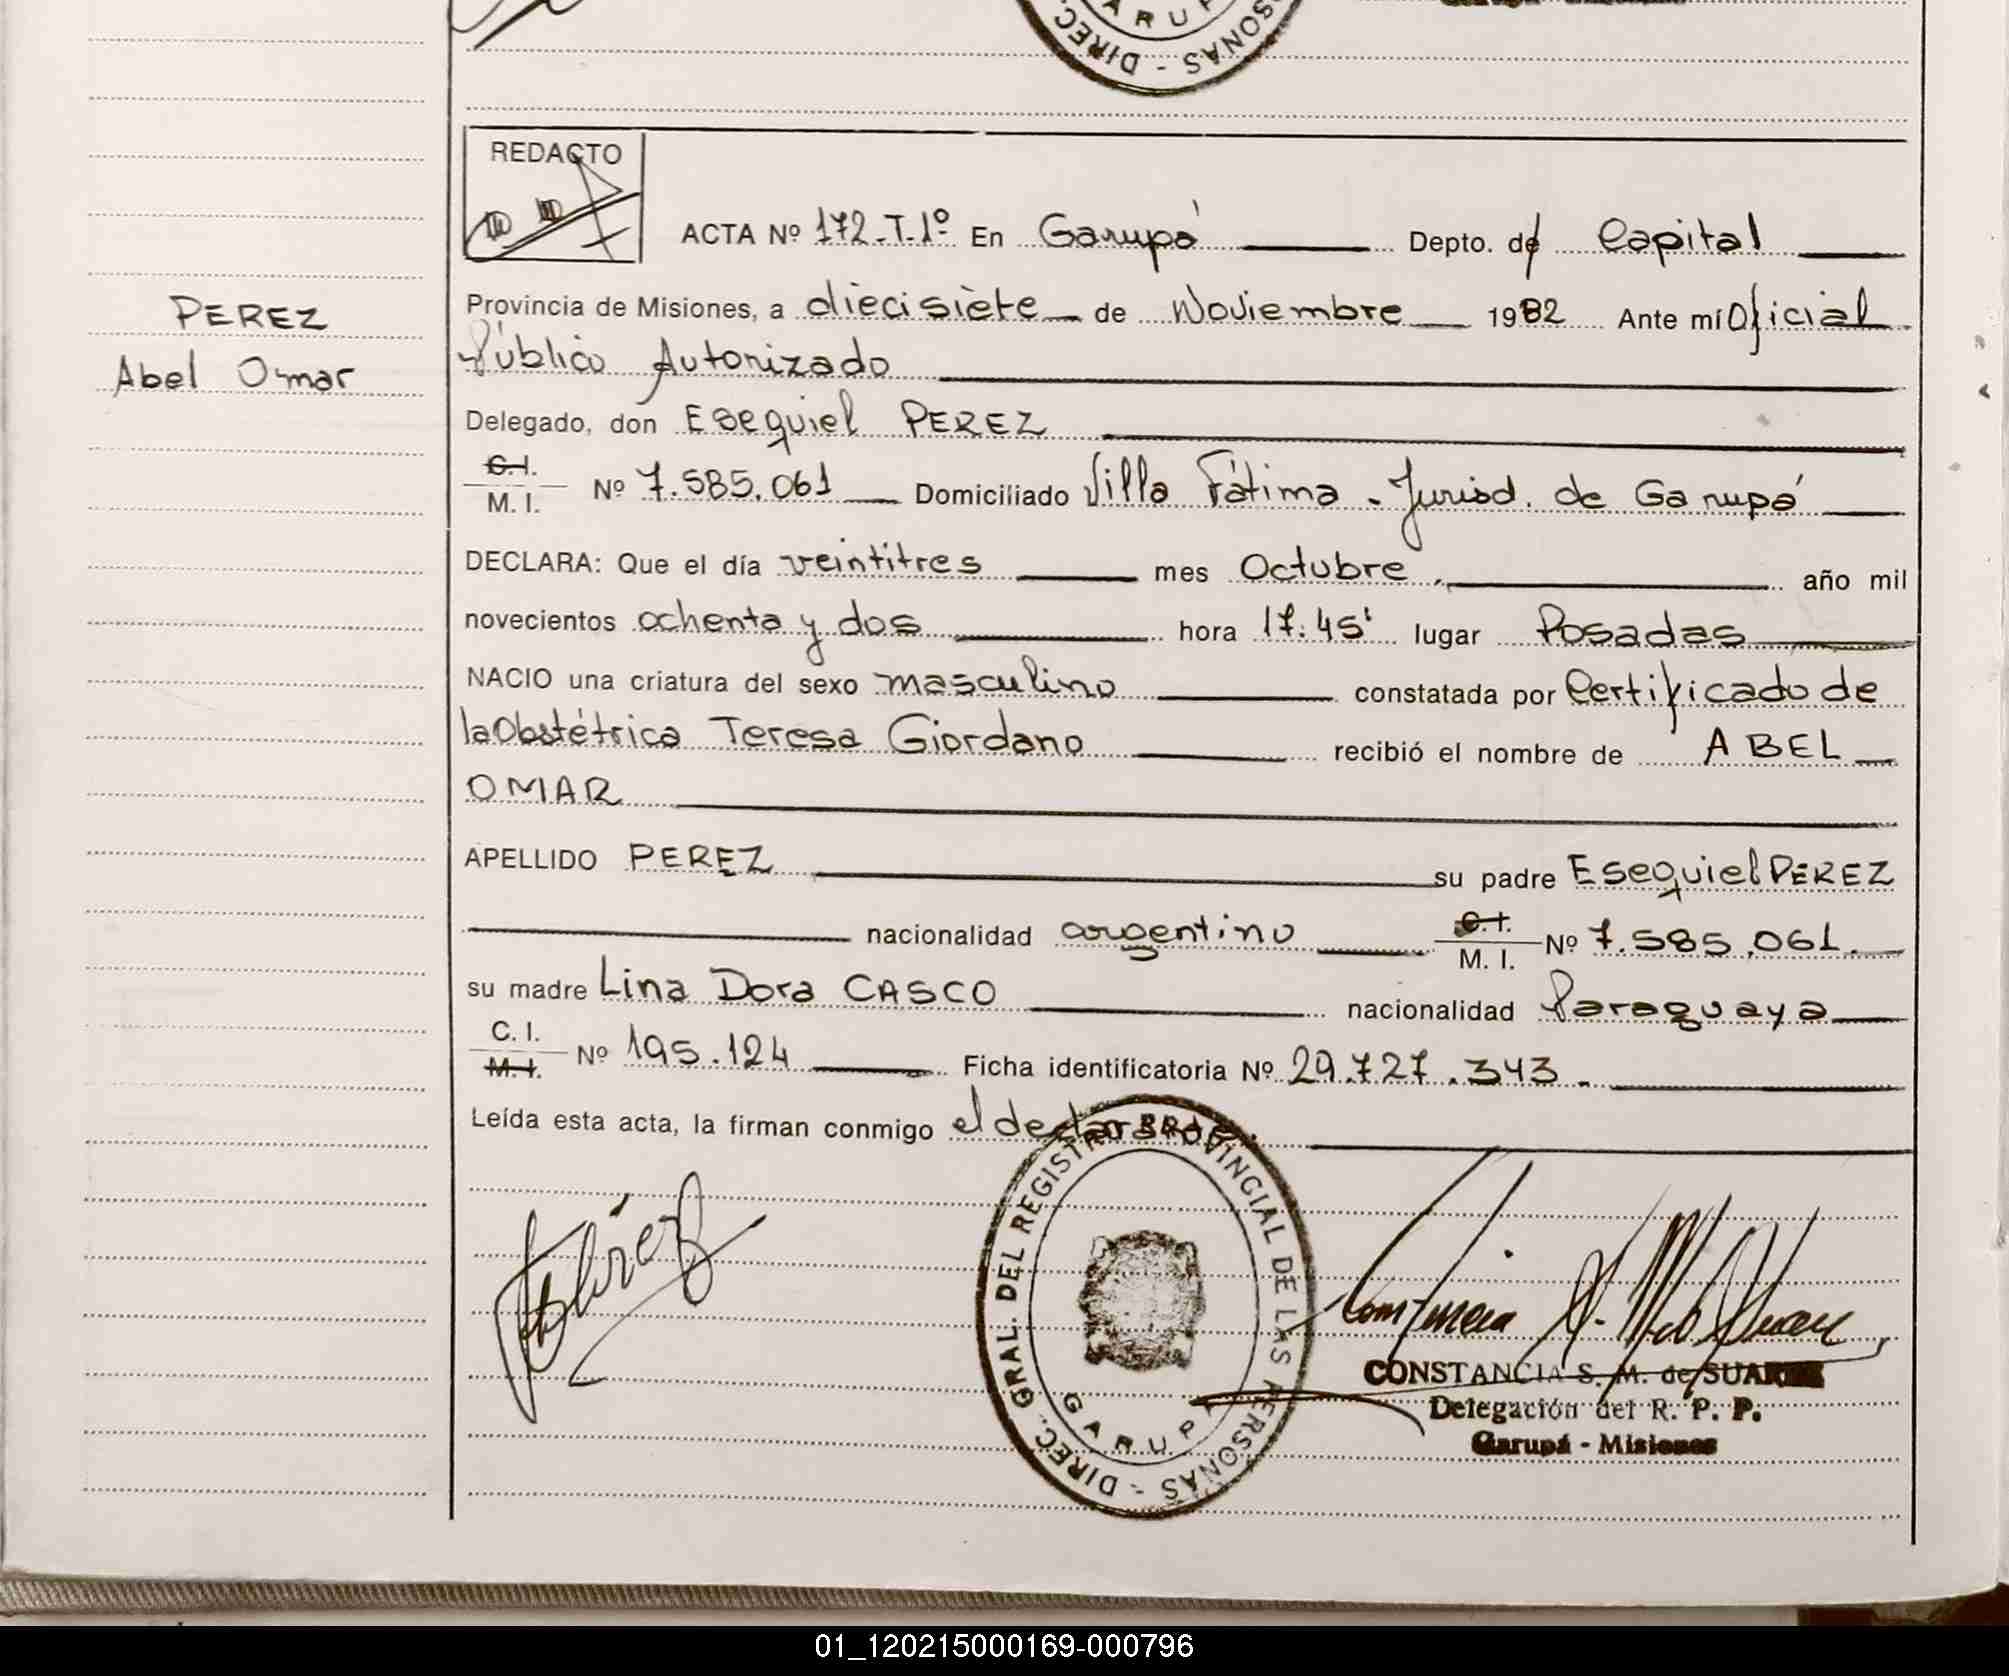 GARUP
DIREC. SONAS -
REDACTO
ACTA Nº 172.T.1º En Garupá Depto. de Capital
Provincia de Misiones, a diecisiete de Noviembre 1982 Ante mi Oficial
PEREZ
Público Autorizado
Abel Omar
Delegado, don Esequiel PEREZ
C.I.
M. I. Nº 7.585.061 Domiciliado Villa Fátima - Jurisd. de Garupá
DECLARA: Que el día veintitres mes Octubre, año mil
novecientos ochenta y dos hora 17.45' lugar Posadas
NACIO una criatura del sexo masculino constatada por Certificado de
la Obstétrica Teresa Giordano recibió el nombre de ABEL
OMAR
APELLIDO PEREZ su padre Esequiel PÉREZ
nacionalidad argentino C.I. M. I. Nº 7.585.061.
su madre Lina Dora CASCO nacionalidad Paraguaya
C. I.
M.I. Nº 195.124 Ficha identificatoria Nº 29.727.343.
Leída esta acta, la firman conmigo el declarante.
DIREC. GRAL. DEL REGISTRO PROVINCIAL DE LAS PERSONAS -
GARUP
CONSTANCIA S. M. de SUAREZ
Delegación del R. P. P.
Garupá - Misiones
01_120215000169-000796